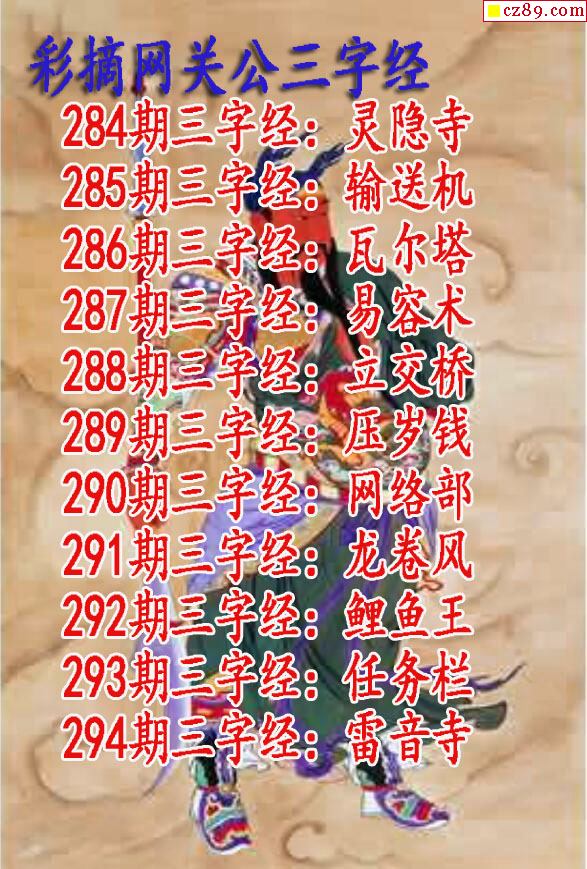 cz89.com
彩摘网关公三字经
284期三字经：灵隐寺
285期三字经：输送机
286期三字经：瓦尔塔
287期三字经：易容术
288期三字经：立交桥
289期三字经：压岁钱
290期三字经：网络部
291期三字经：龙卷风
292期三字经：鲤鱼王
293期三字经：任务栏
294期三字经：雷音寺